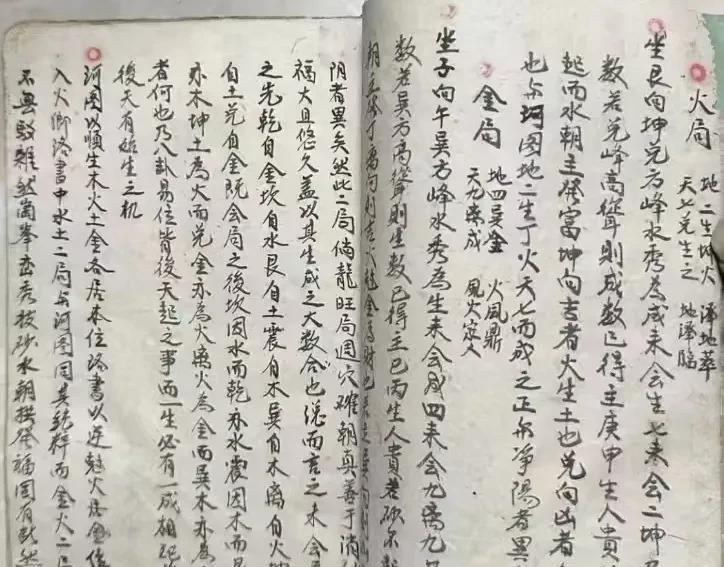 火局
地二生坤火
天七兑生之
澤地萃
地澤臨
坐艮向坤兑方峰水秀為成来会生七来会二坤
数若兑峰高聳則成数已得主庚甲生人貴
起而水朝主發富坤向吉者火生土也兑向凶者
也与河图地二生丁火天七而成之正与净陽者異
金局
地四巽金
天九乘成
火風鼎
風火家人
坐子向午巽方峰水秀為生来会成四来会九离九
数若巽方高聳則生数已得主巳丙生人貴若砂不
火尅金為財也
阴者異矣然此二局倘龍旺局週穴难朝真善于消
福大且悠久蓋以其生成之大数合也總而言之未会
之先乾自金坎自水艮自土震自木巽自木离自火坤
自土兑自金既会局之後坎因水而乾亦水震因木而艮
亦木坤土為火而兑金亦為火离火為金而巽木亦為
者何也乃八卦易位皆後天起之事而一生必有一成相配
後天有始生之机
河图以順生木火土金各居本位洛書以逆尅火
入火乡洛書中水土二局与河图同其純粹而金火二局
不無駁雜然崗峯峦秀拔砂水朝拱發福固有